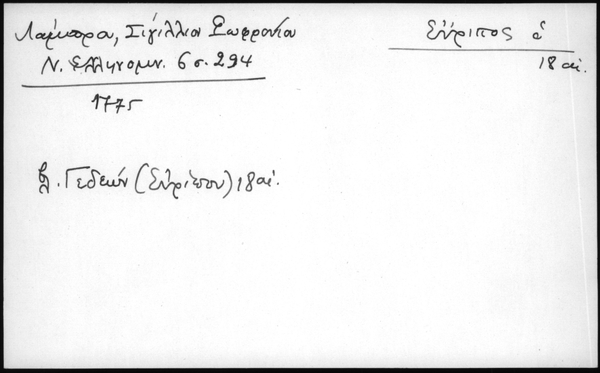 Λάμπρου, Σιγίλλιον Σωφρονίου
Ν. Ελληνομν. 6 σ. 294
1775
Εὔριπος ά
18 αἰ.
βλ. Γεδεών (Εὐρίπου) 18 αἰ.